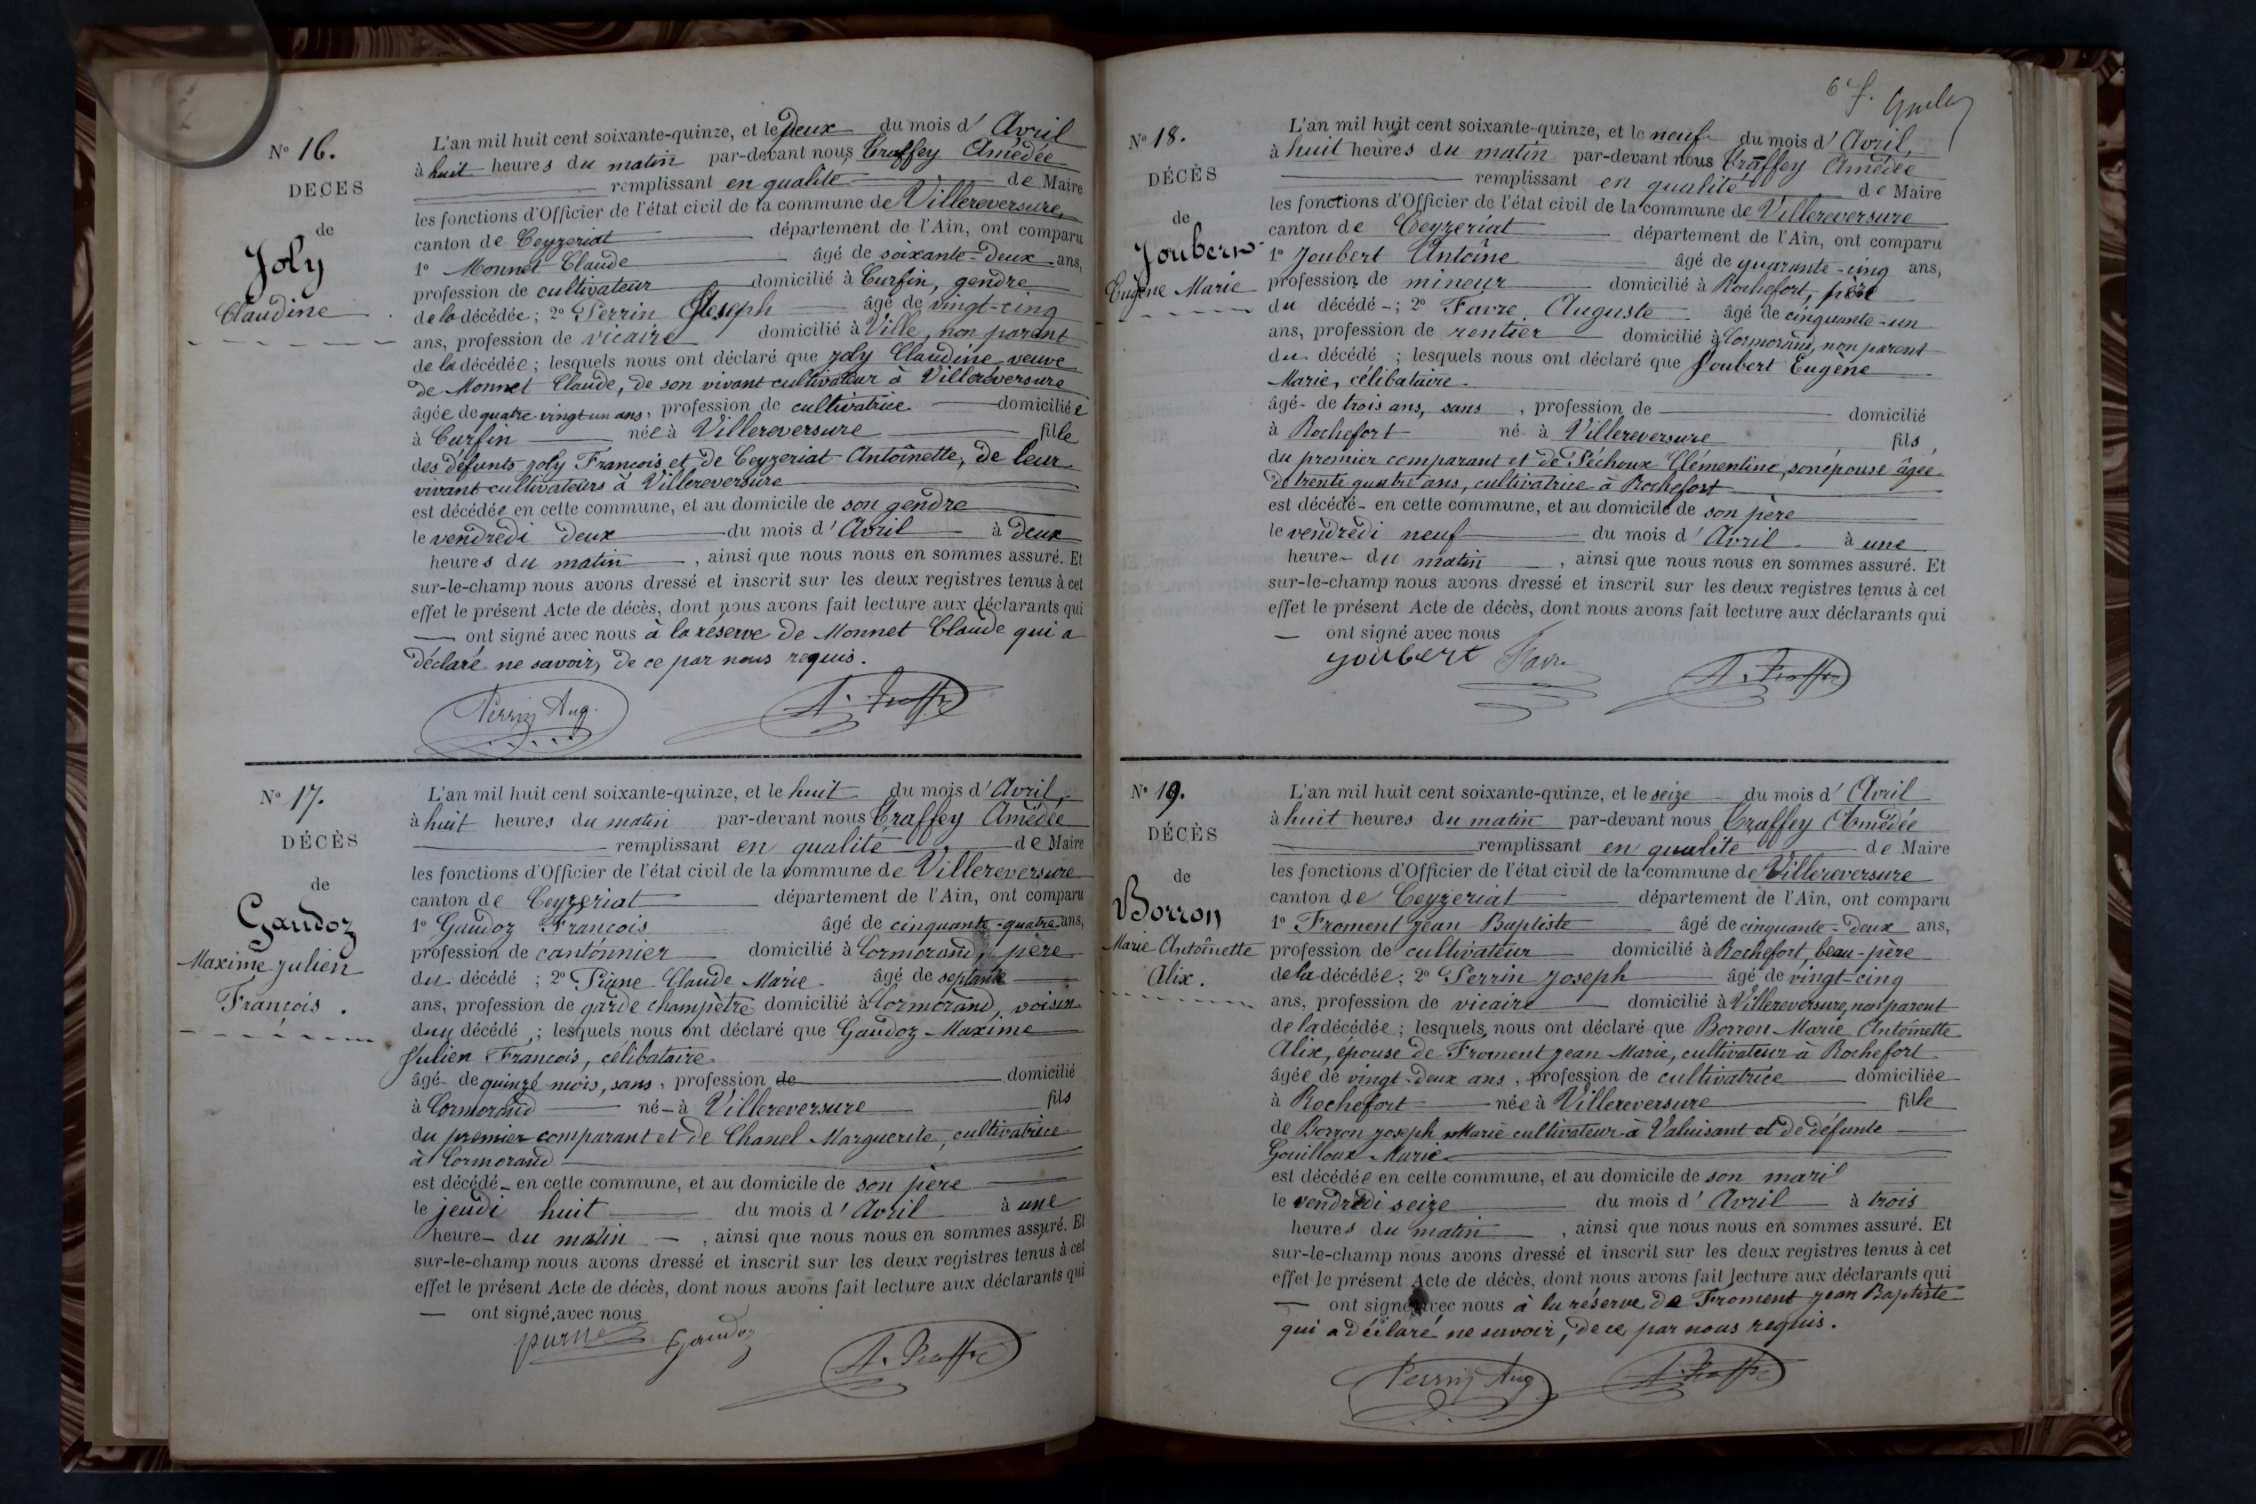 N° 16.
DECES
de
Joly
Claudine
L'an mil huit cent soixante-quinze, et le deux du mois d'Avril
à huit heures du matin par-devant nous Traffey Amédée
remplissant en qualité de Maire
les fonctions d'Officier de l'état civil de la commune de Villereversure,
canton de Ceyzeriat département de l'Ain, ont comparu
1° Monnet Claude âgé de soixante-deux ans,
profession de cultivateur domicilié à Curfin, gendre
de la décédée; 2° Perrin Joseph âgé de vingt-cinq
ans, profession de vicaire domicilié à Ville, non parent
de la décédée; lesquels nous ont déclaré que Joly Claudine veuve
de Monnet Claude, de son vivant cultivateur à Villereversure
âgée de quatre vingt un ans, profession de cultivatrice domiciliée
à Curfin née à Villereversure fille
des défunts Joly François et de Ceyzeriat Antoinette, de leur
vivant cultivateurs à Villereversure
est décédée en cette commune, et au domicile de son gendre
le vendredi deux du mois d'Avril à deux
heures du matin, ainsi que nous nous en sommes assuré. Et
sur-le-champ nous avons dressé et inscrit sur les deux registres tenus à cet
effet le présent Acte de décès, dont nous avons fait lecture aux déclarants qui
ont signé avec nous à la réserve de Monnet Claude qui a
déclaré ne savoir, de ce par nous requis.
Perrin Aug. A. Traffey
N° 17.
DÉCÈS
de
Gaudoz
Maxime Julien
François.
L'an mil huit cent soixante-quinze, et le huit du mois d'Avril,
à huit heures du matin par-devant nous Traffey Amédée
remplissant en qualité de Maire
les fonctions d'Officier de l'état civil de la commune de Villereversure
canton de Ceyzeriat département de l'Ain, ont comparu
1° Gaudoz François âgé de cinquante-quatre ans,
profession de cantonnier domicilié à Cormorand, père
du décédé; 2° Piane Claude Marie âgé de septante
ans, profession de garde champêtre domicilié à Cormorand, voisin
du décédé; lesquels nous ont déclaré que Gaudoz Maxime
Julien François, célibataire
âgé de quinze mois, sans, profession de domicilié
à Cormorand né à Villereversure fils
du premier comparant et de Chanel Marguerite, cultivatrice
à Cormorand
est décédé en cette commune, et au domicile de son père
le jeudi huit du mois d'Avril à une
heure du matin, ainsi que nous nous en sommes assuré. Et
sur-le-champ nous avons dressé et inscrit sur les deux registres tenus à cet
effet le présent Acte de décès, dont nous avons fait lecture aux déclarants qui
ont signé, avec nous
Gaudoz A. Traffey
6 f.
N° 18.
DÉCÈS
de
Joubert
Eugène Marie
L'an mil huit cent soixante-quinze, et le neuf du mois d'Avril,
à huit heures du matin par-devant nous Traffey Amédée
remplissant en qualité de Maire
les fonctions d'Officier de l'état civil de la commune de Villereversure
canton de Ceyzeriat département de l'Ain, ont comparu
1° Joubert Antoine âgé de quarante-cinq ans,
profession de mineur domicilié à Rochefort, père
du décédé; 2° Favre Auguste âgé de cinquante-un
ans, profession de rentier domicilié à Cormorand, non parent
du décédé; lesquels nous ont déclaré que Joubert Eugène
Marie, célibataire
âgé de trois ans, sans, profession de domicilié
à Rochefort né à Villereversure fils
du premier comparant et de Péchoux Clémentine, son épouse âgée
de trente quatre ans, cultivatrice à Rochefort
est décédé en cette commune, et au domicile de son père
le vendredi neuf du mois d'Avril à une
heure du matin, ainsi que nous nous en sommes assuré. Et
sur-le-champ nous avons dressé et inscrit sur les deux registres tenus à cet
effet le présent Acte de décès, dont nous avons fait lecture aux déclarants qui
ont signé avec nous
Joubert Favre A. Traffey
N° 19.
DÉCÈS
de
Borron
Marie Antoinette
Alix.
L'an mil huit cent soixante-quinze, et le seize du mois d'Avril
à huit heures du matin par-devant nous Traffey Amédée
remplissant en qualité de Maire
les fonctions d'Officier de l'état civil de la commune de Villereversure
canton de Ceyzeriat département de l'Ain, ont comparu
1° Froment Jean Baptiste âgé de cinquante-deux ans,
profession de cultivateur domicilié à Rochefort, beau-père
de la décédée; 2° Perrin Joseph âgé de vingt-cinq
ans, profession de vicaire domicilié à Villereversure, non parent
de la décédée; lesquels nous ont déclaré que Borron Marie Antoinette
Alix, épouse de Froment Jean Marie, cultivateur à Rochefort
âgée de vingt-deux ans, profession de cultivatrice domiciliée
à Rochefort née à Villereversure fille
de Borron Joseph Marie cultivateur à Valuisant et de défunte
Gouilloux Marie
est décédée en cette commune, et au domicile de son maril
le vendredi seize du mois d'Avril à trois
heures du matin, ainsi que nous nous en sommes assuré. Et
sur-le-champ nous avons dressé et inscrit sur les deux registres tenus à cet
effet le présent Acte de décès, dont nous avons fait lecture aux déclarants qui
ont signé avec nous à la réserve de Froment Jean Baptiste
qui a déclaré ne savoir, de ce par nous requis.
Perrin Aug A. Traffey